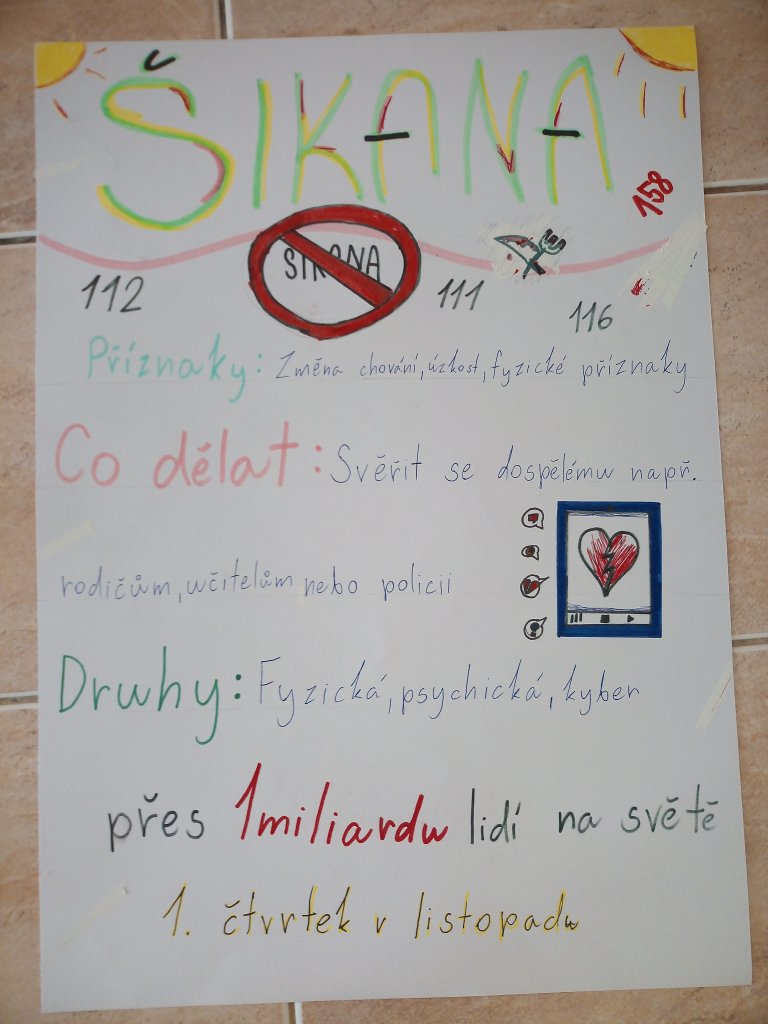 ŠIKANA
158
ŠIKANA
112
111
116
Příznaky: Změna chování, úzkost, fyzické příznaky
Co dělat: Svěřit se dospělému např.
rodičům, učitelům nebo policii
Druhy: Fyzická, psychická, kyber
přes 1miliardu lidí na světě
1. čtvrtek v listopadu